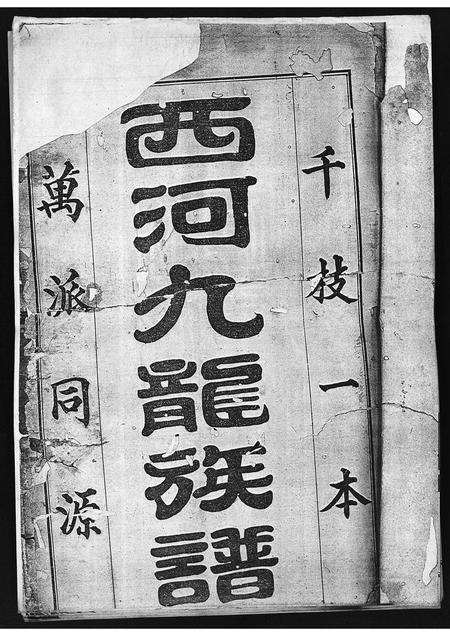 千枝一本
西河九龍族譜
萬派同源